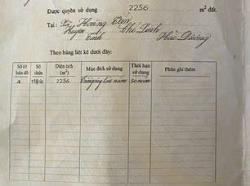 Được quyền sử dụng 2256 m² đất.
Tại: Xã Hoàng Tiến Chí Linh
Huyện
Tỉnh Hải Dương
Theo bảng liệt kê dưới đây:
Số tờ bản đồ Số thửa Diện tích (m²) Mục đích sử dụng Thời hạn sử dụng Phần ghi thêm
2256